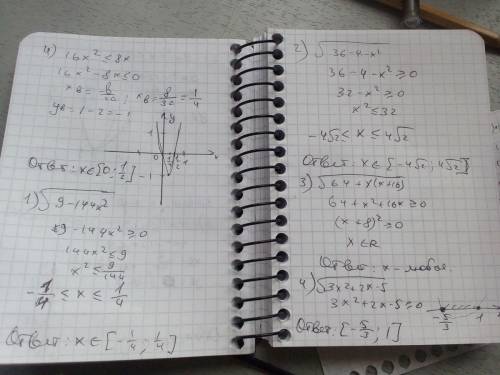 4) 16x² ≤ 8x
16x² - 8x ≤ 0
xв = 8/32 = 1/4
yв = 1 - 2 = -1
y
x
1
0
-1
Ответ: x∈[0; 1/2]
1) √(9 - 144x²)
9 - 144x² ≥ 0
144x² ≤ 9
x² ≤ 9/144
-1/4 ≤ x ≤ 1/4
Ответ: x∈[-1/4; 1/4]
2) √(36 - 4 - x²)
36 - 4 - x² ≥ 0
32 - x² ≥ 0
x² ≤ 32
-4√2 ≤ x ≤ 4√2
Ответ: x∈[-4√2; 4√2]
3) √(64 + x(x+16))
64 + x² + 16x ≥ 0
(x + 8)² ≥ 0
x∈R
Ответ: x - любое.
4) √(3x² + 2x - 5)
3x² + 2x - 5 ≥ 0
-5/3 1
Ответ: [-5/3; 1]